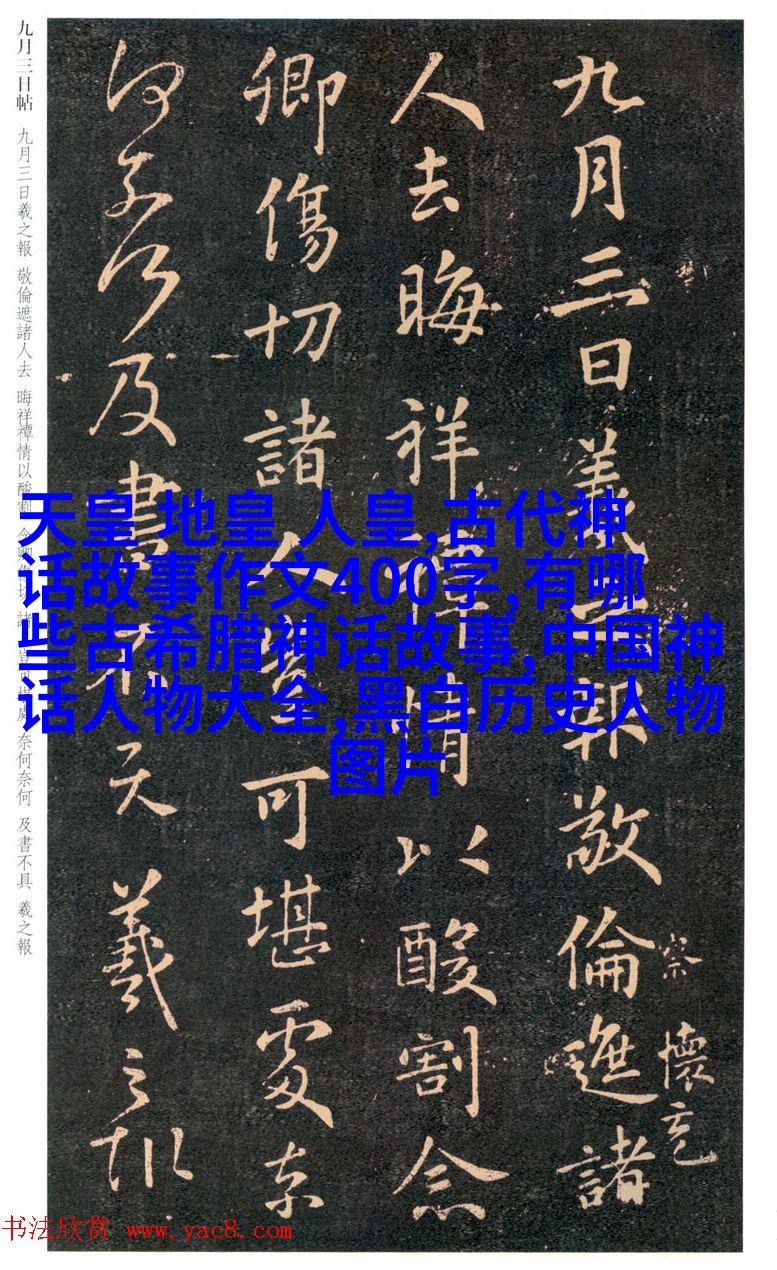 九月三日羲之報敬倫遮諸
察懷充
人去晦祥禫情以酸割念
卿傷切諸人豈可堪處奈
何奈何及書不具羲之報
九月三日帖 九月三日羲之報 敬倫遮諸人去 晦祥禫情以酸割 奈何奈何 及書不具 羲之報
天皇 地皇 人皇,古代神
话故事作文400字,有哪
些古希腊神话故事,中国神
话人物大全,黑白历史人物
图片
书法欣赏 www.yac8.com